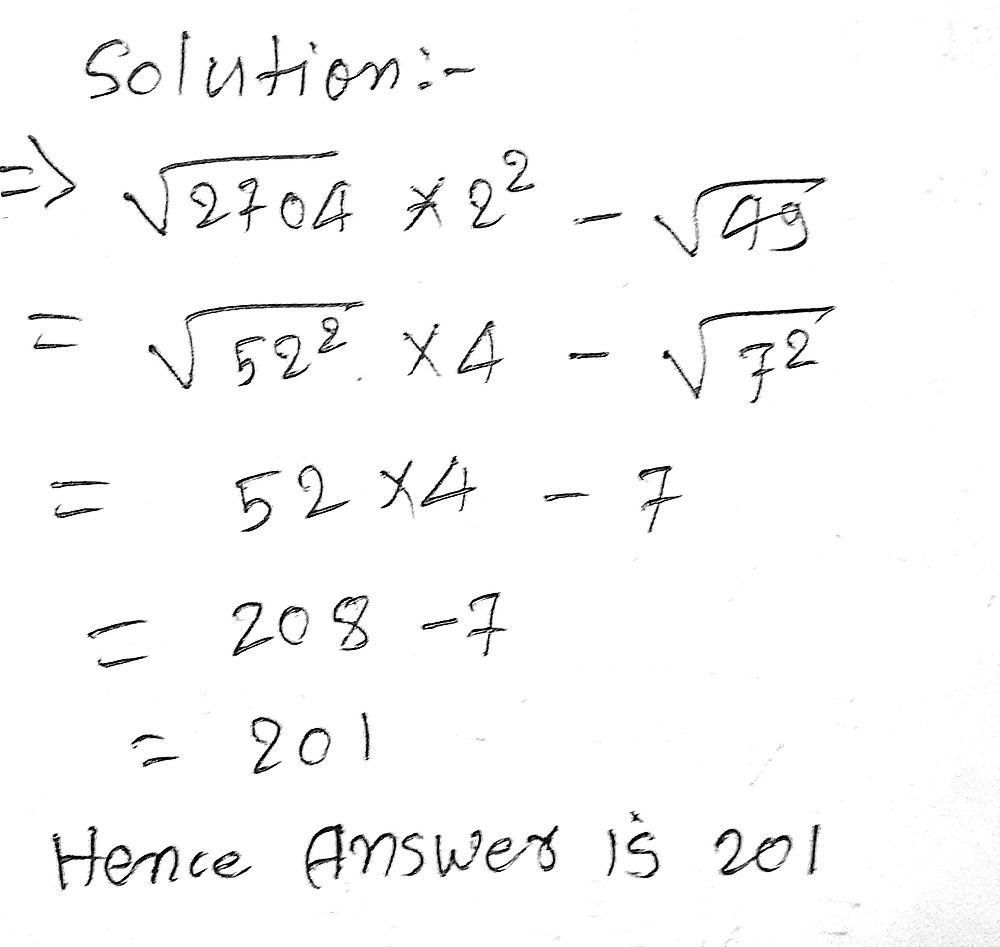 Solution:-
=> √2704 × 2² - √49
= √52² × 4 - √7²
= 52 × 4 - 7
= 208 - 7
= 201
Hence Answer is 201